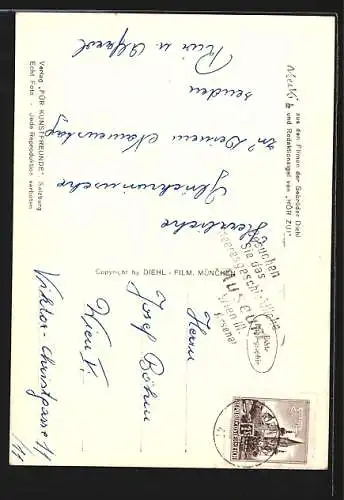 Mecki
aus den Filmen der Gebrüder Diehl
und Redaktionsigel von „HÖR ZU!"
Herzliche
Glückwünsche
zu Deinem Namenstag
senden
Verlag „FÜR KUNSTFREUNDE", Salzburg
Echt Foto - Jede Reproduction verboten
Copyright by DIEHL - FILM, MÜNCHEN
Besuchen
Sie das
Heeresgeschichtliche
Museum
Wien III.
Arsenal
Herrn
Josef Böhm
Wien V.
Viktor-Christgasse 11